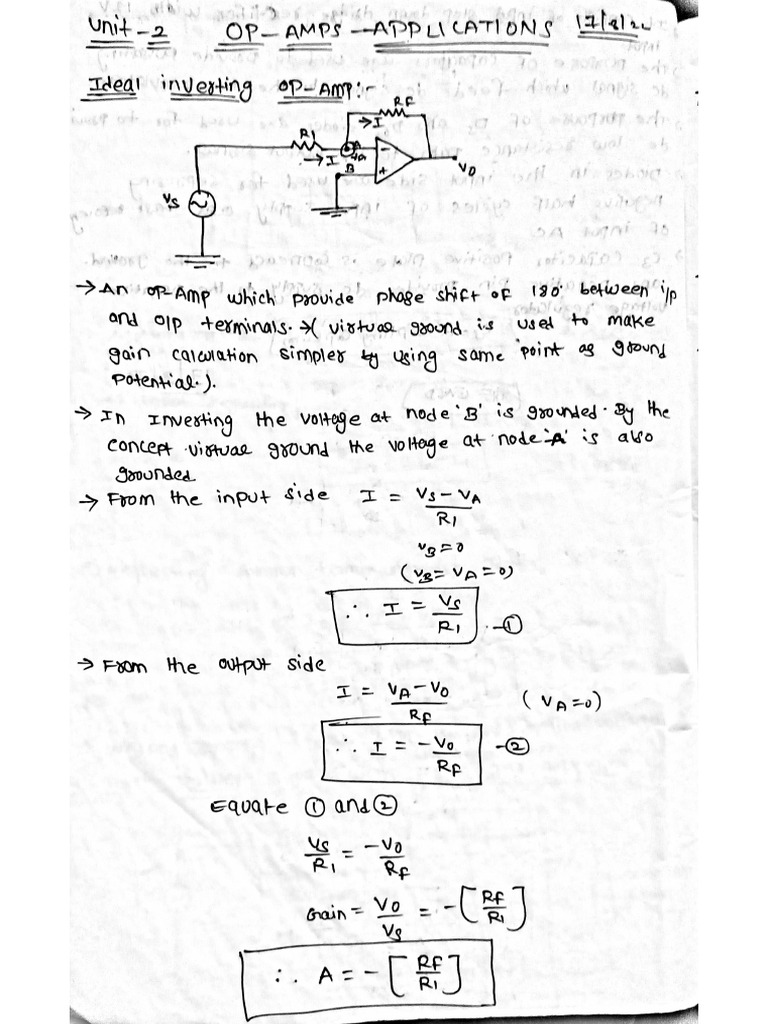 Unit-2 OP-AMPS-APPLICATIONS
Ideal inverting OP-AMP:-
RF
→I
R1
→I
A
B
-
+
VO
VS
~
→ An OP-AMP which provide phase shift of 180° between i/p
and O/P terminals. → ( virtual ground is used to make
gain calculation simpler by using same point as ground
Potential.).
→ In Inverting the voltage at node 'B' is grounded. By the
concept virtual ground the voltage at node 'A' is also
grounded
→ From the input side I = VS-VA / R1
VB=0
(VB= VA=0)
∴ I = VS / R1 -①
→ From the output side
I = VA-VO / RF (VA=0)
∴ I = -VO / RF -②
Equate ① and ②
VS / R1 = -VO / RF
Gain = VO / VS = -[RF / R1]
∴ A = -[RF / R1]